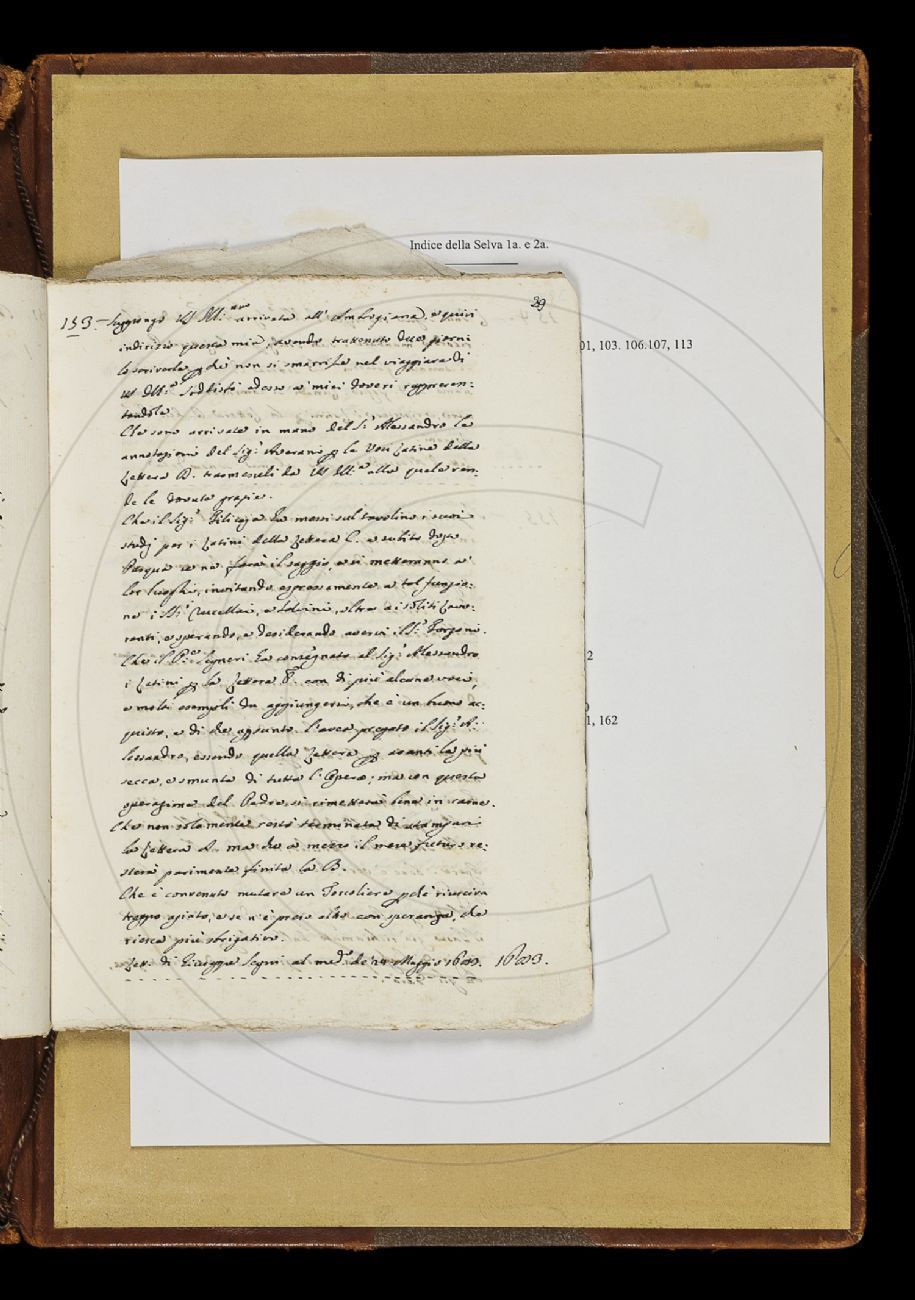 Indice della Selva 1a. e 2a.
29
01, 103. 106.107, 113
153 – Suppongo arrivata all' Ambrogiana, e quivi
indirizzo questa mia, avendo trattenuto due giorni
lo scriverle che non si smarrisse nel viaggiare di
Soddisfo adesso a' miei doveri rappresen-
tandole
Che sono arrivate in mano del S.r Alessandro le
annotazioni del Sig.r Averani le Voci Latine della
Lettera D. trasmesseli da alla quale ren-
de le dovute grazie.
Che il Sig.r Filicaja ha messi sul tavolino i suoi
studj per i Latini della Lettera C. e subito dopo
Pasqua ce ne farà il saggio, e si metteranno a'
lor luoghi, invitando espressamente a tal funzio-
ne i SS.ri Rucellai, e Salvini, oltre a i soliti Lavo-
ranti, e sperando, e desiderando averci il S.r Forzoni.
Che il P.re Segneri ha consegnato al Sig.r Alessandro
i Latini la Lettera con di più alcune voci,
e molti esempli da aggiungersi, che è un buono ac-
quisto, e di che appunto l'avea pregato il Sig.r A-
lessandro, essendo quella Lettera avanti la più
secca, e smunta di tutta l'Opera; ma con questa
operazione del Padre si rimetterà bene in carne.
Che non solamente restò terminata di stamparsi
la Lettera A. ma che a mezzo il mese futuro re-
sterà parimente finita la B.
Che è convenuto mutare un Torcoliere perché riusciva
troppo agiato, e se n'è preso altro con speranza, che
riesca più sbrigativo.
Lett. di Giuseppe Segni al med.o de' Maggio 1683. 1683.
2
1, 162